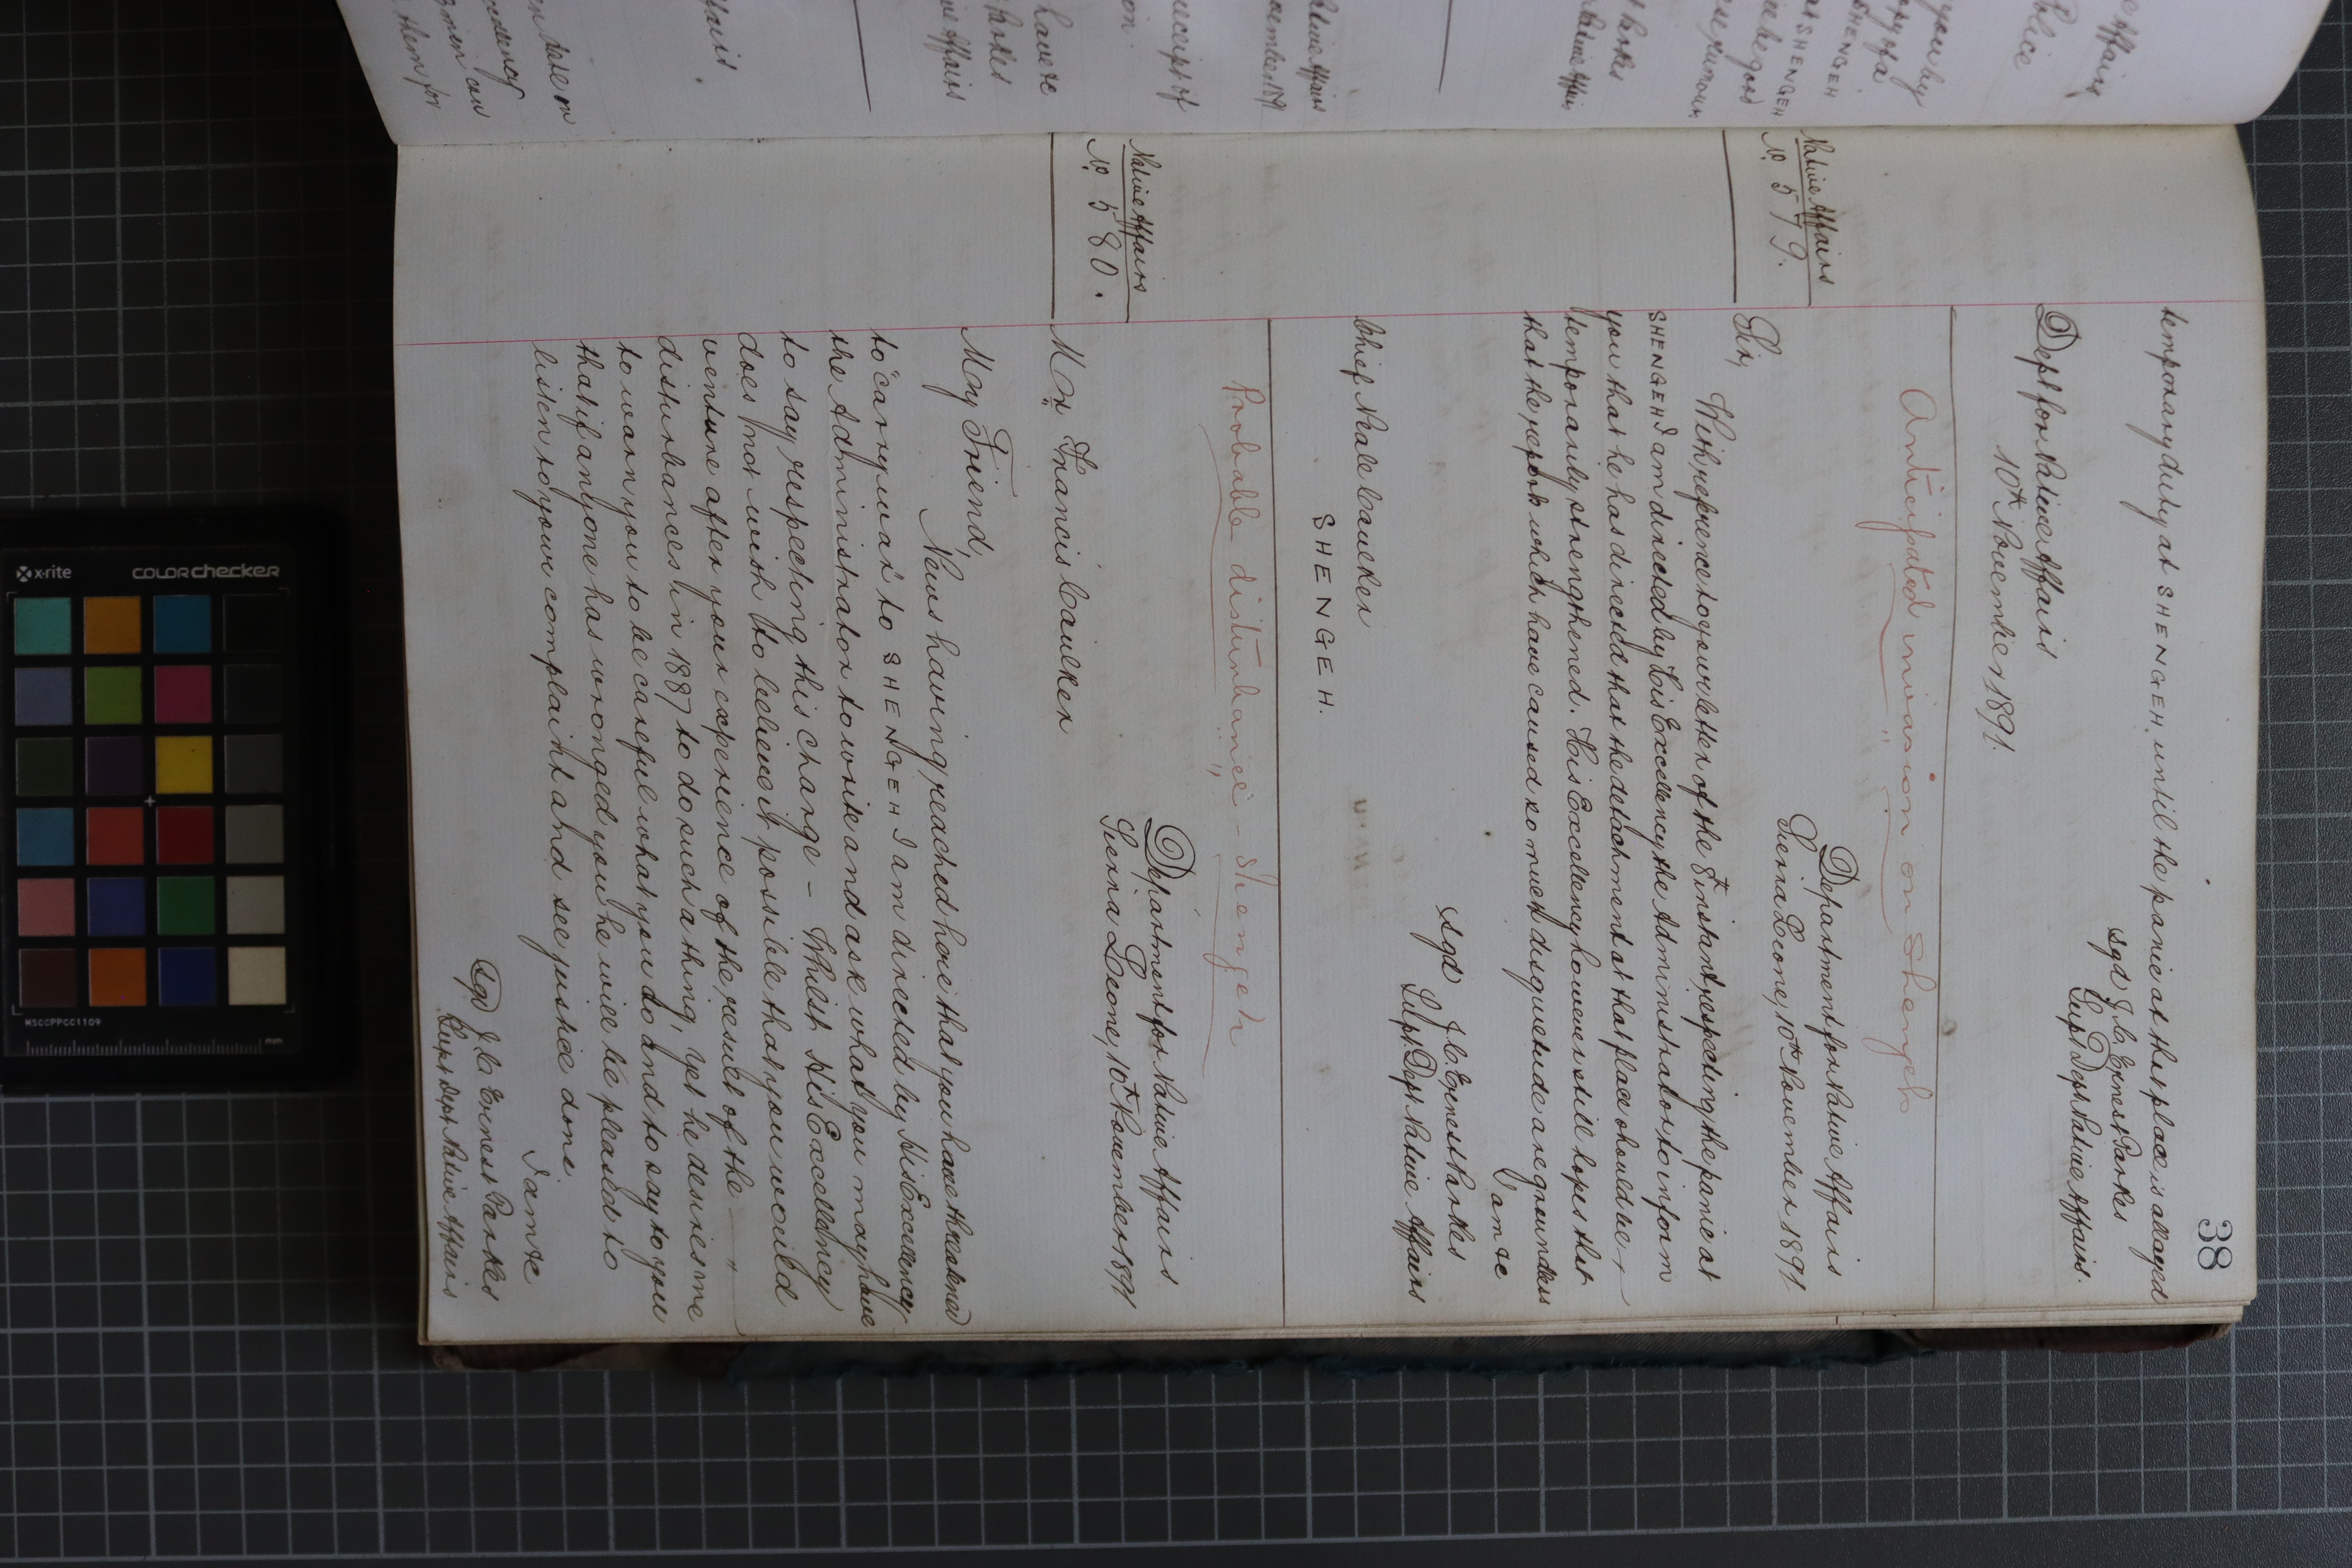 38
temporary duty at SHENGEH, until the panic at that place is allayed
sgd J. C. Ernest Parkes
Supt Dept Native Affairs.
Dept for Native Affairs
10th November 1891.
Anticipated invasion on Shengeh
Native Affairs
No. 579.
Department for Native Affairs
Sierra Leone, 10th November 1891
Sir,
With reference to your letter of the 8th instant, respecting the panic at
SHENGEH I am directed by His Excellency the Administrator to inform
you that he has directed that the detachment at that place should be
temporarily strengthened. His Excellency however still hopes that
that the reports which have caused so much disquietude are groundless
I am &c
sgd J. C. Ernest Parkes
Supt Dept Native Affairs
Chief Neale Caulker
SHENGEH.
Probable disturbance - Shengeh
Native Affairs
No. 580.
Department for Native Affairs
Sierra Leone, 10th November 1891
Mr Francis Caulker
My Friend,
News having reached here that you have threatened
to "carry war" to SHENGEH I am directed by His Excellency
the Administrator to write and ask what you may have
to say respecting this charge - Whilst His Excellency
does not wish to believe it possible that you would
venture after your experience of the result of the
disturbances in 1887 to do such a thing, yet he desires me
to warn you to be careful what you do and to say to you
that if anyone has wronged you he will be pleased to
listen to your complaint and see justice done
I am &c
Sgd J. C. Ernest Parkes
Supt Dept Native Affairs
x-rite
COLORchecker
MSCCPPCC1109
mm